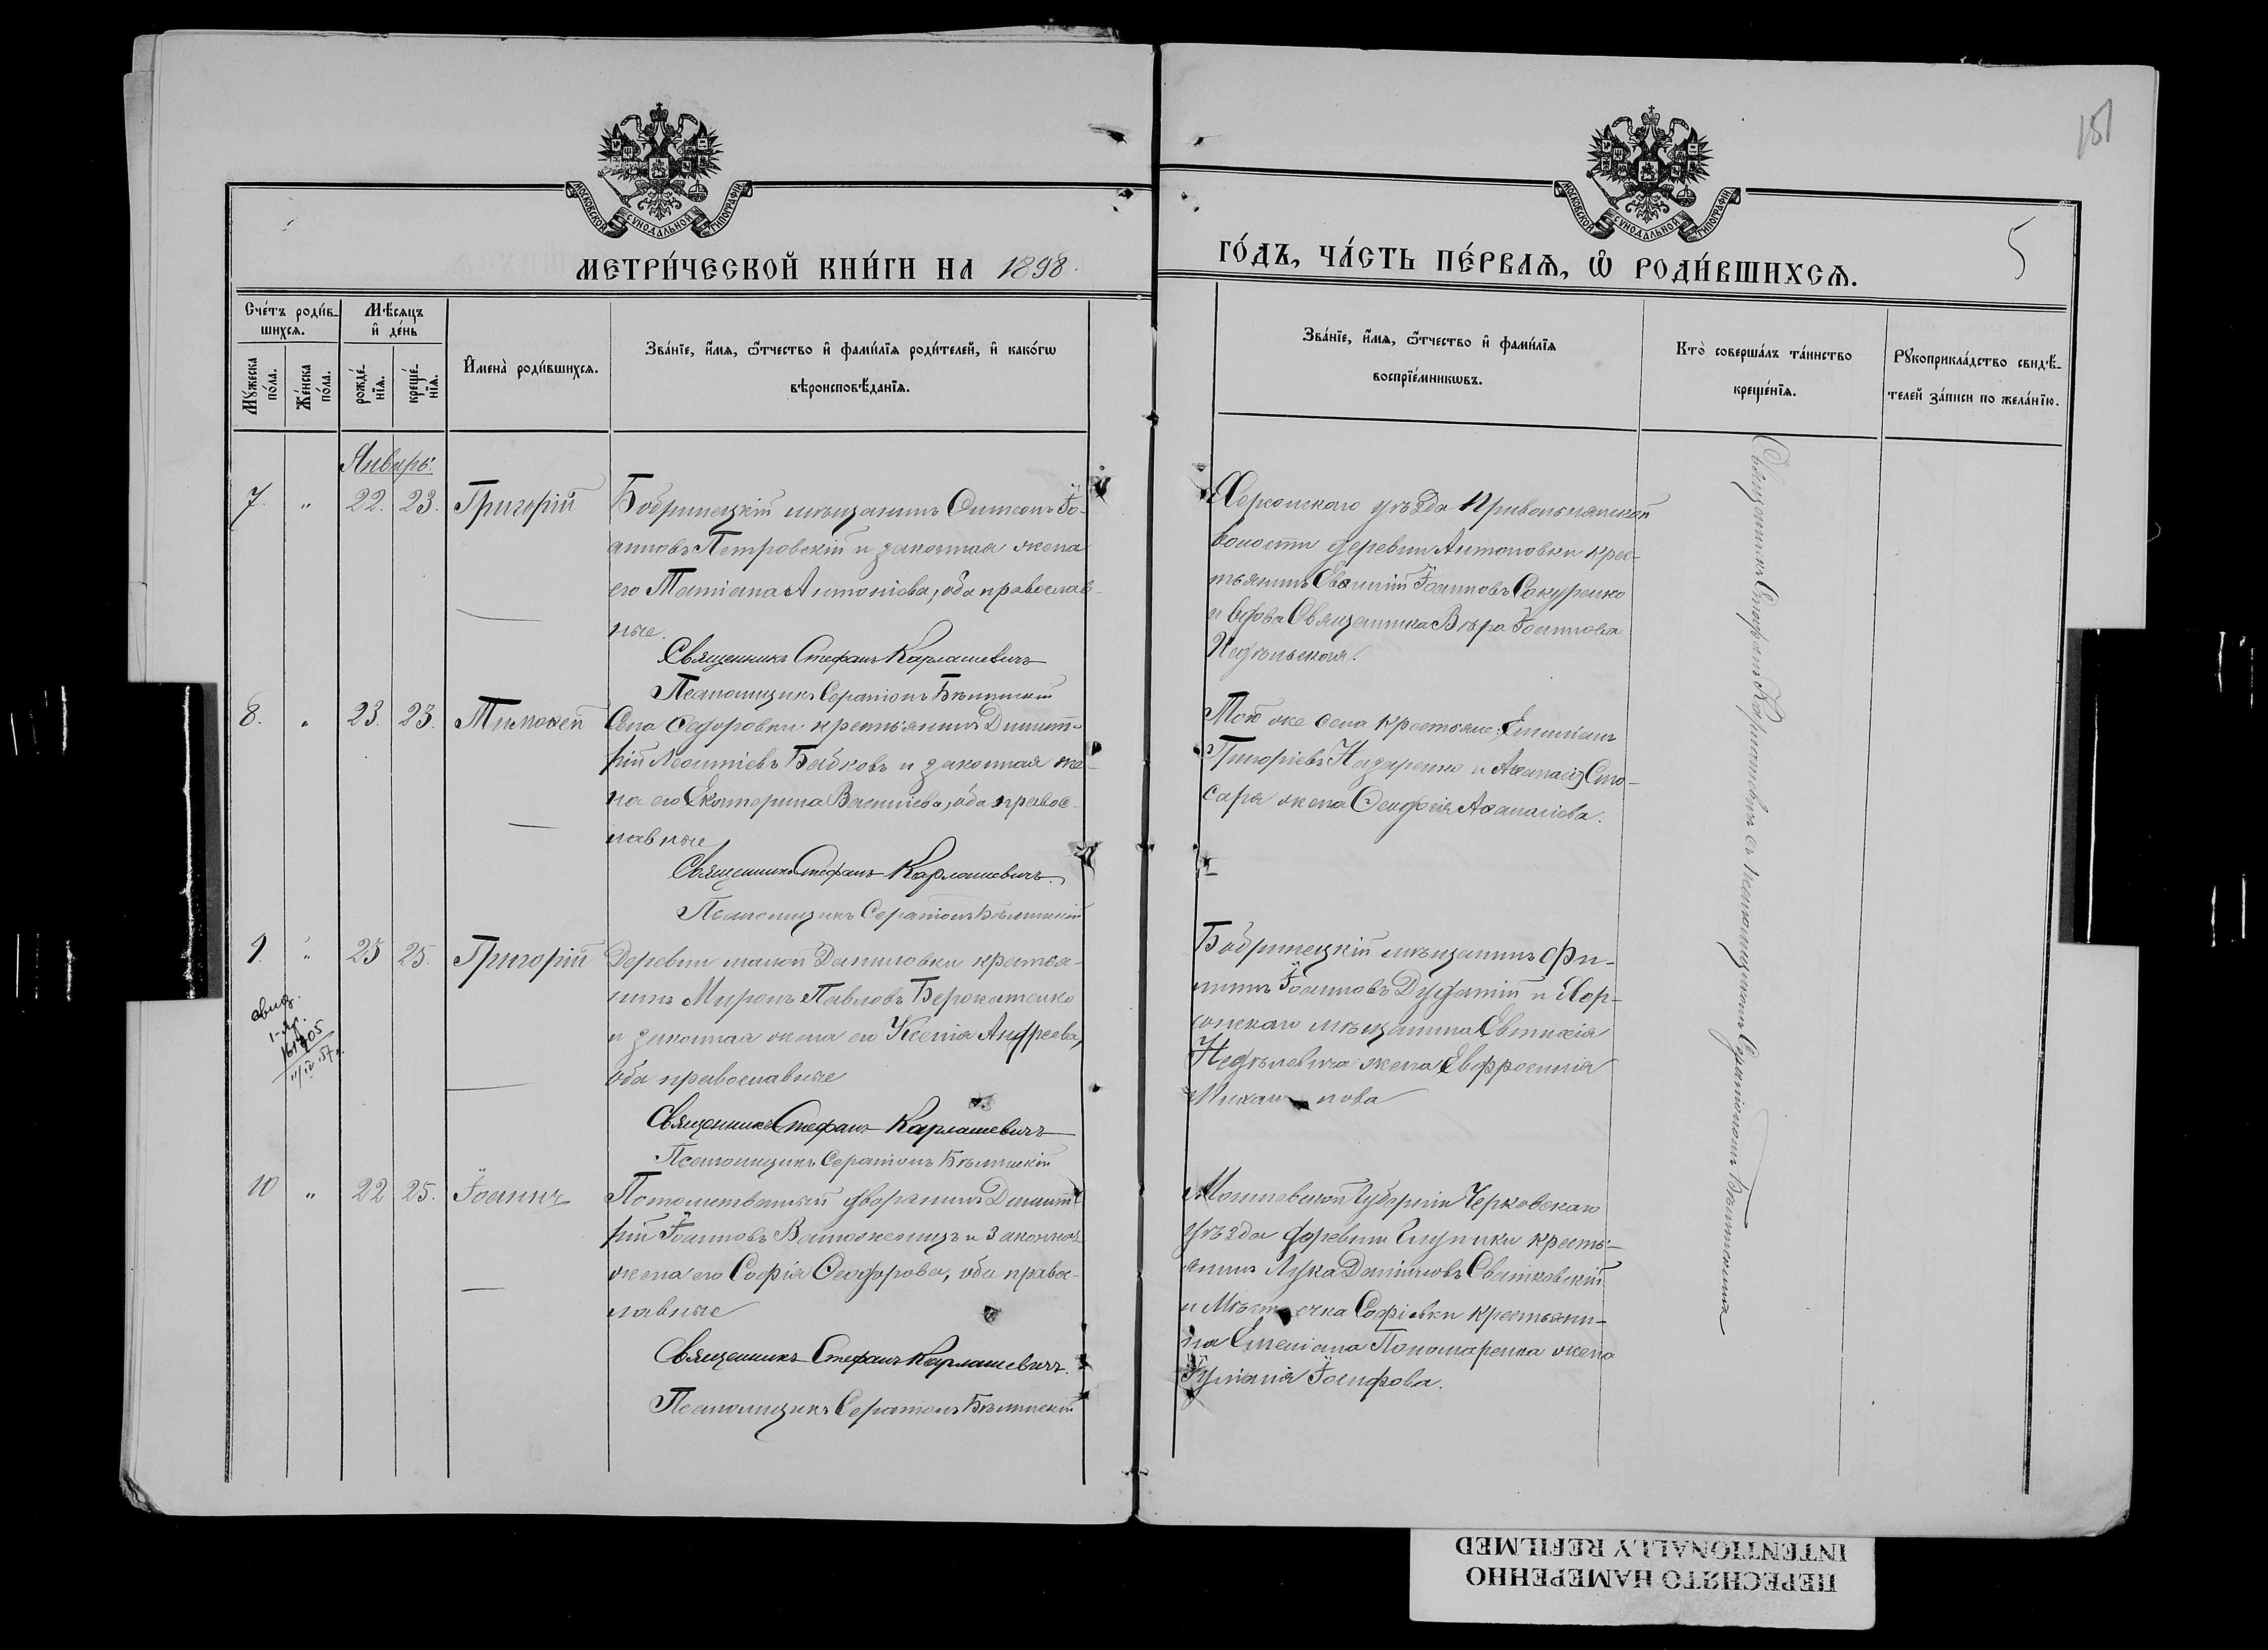 151
5
МОСКОВСКОЙ СѴНОДАЛЬНОЙ ТИПОГРАФІИ
МОСКОВСКОЙ СѴНОДАЛЬНОЙ ТИПОГРАФІИ
МЕТРИ́ЧЕСКОЙ КНИ́ГИ НА 1898.
ГО́ДЪ, ЧА́СТЬ ПЕ́РВАѦ, Ѡ҆ РОДИ́ВШИХСѦ.
Сче́тъ роди́в-
шихсѧ.
Мꙋ́жеска по́ла.
Же́нска по́ла.
Мѣ́сѧцъ
и҆ де́нь
рожде́-
нїѧ.
креще́-
нїѧ.
И҆мена̀ роди́вшихсѧ.
Зва́нїе, и҆́мѧ, ѻ҆́тчество и҆ фами́лїѧ роди́телей, и҆ како́гѡ
вѣроисповѣ́данїѧ.
Зва́нїе, и҆́мѧ, ѻ҆́тчество и҆ фами́лїѧ
воспрїе́мникѡвъ.
Кто̀ соверша́лъ та́инство
креще́нїѧ.
Рꙋкоприкла́дство свидѣ́-
телей за́писи по жела́нїю.
Январь.
7. " 22. 23. Григорій
Бобринецкій мѣщанинъ Симеонъ Іо-
анновъ Петровскій и законная жена
его Татіана Антоніева, оба православ-
ные.
Священникъ Стефанъ Карлашевичъ
Псаломщикъ Серапіонъ
Херсонскаго уѣзда Привольнянской
волости деревни Антоновки крес-
тьянинъ Іоанновъ Сокуренко
и вдова Священника Вѣра Іоаннова
Недѣльская.
8. " 23. 23. Тимоѳей
Села Ѳедоровки крестьянинъ Димит-
рій Леонтіевъ Бабковъ и законная же-
на его Екатерина Васильева, оба правос-
лавные
Священникъ Стефанъ Карлашевичъ.
Псаломщикъ Серапіонъ
Того же села крестьяне: Емиліанъ
Григоріевъ Назаренко и Аѳанасія Сле-
саря жена Ѳеодосія Аѳанасіева.
9. " 25 25. Григорій
Деревни малой Даниловки крестья-
нинъ Миронъ Павловъ
и законная жена его Ксенія Андреева,
оба православные
Священникъ Стефанъ Карлашевичъ
Псаломщикъ Серапіонъ
Бобринецкій мѣщанинъ Фи-
липпъ Іоанновъ и Хер-
сонскаго мѣщанина Евтихія
Недѣлевича жена Евфросинія
Михаи лова
10 " 22 25. Іоаннъ
Потомственный дворянинъ Димит-
рій Іоанновъ и Законная
жена его Софія Ѳеодорова, оба правос-
лавные
Священникъ Стефанъ Карлашевичъ.
Псаломщикъ Серапіонъ
Могилевской Губерніи Чериковскаго
уѣзда деревни крестья-
нинъ Лука Даниловъ Сватковскій
и Мѣст ечка Софіевки крестьяни-
на Емеліана Пономаренка жена
Іуліанія Іосифова.
Священникъ Стефанъ Карлашевичъ съ псаломщикомъ Серапіономъ
ПЕРЕСНЯТО НАМЕРЕННО
INTENTIONALLY REFILMED